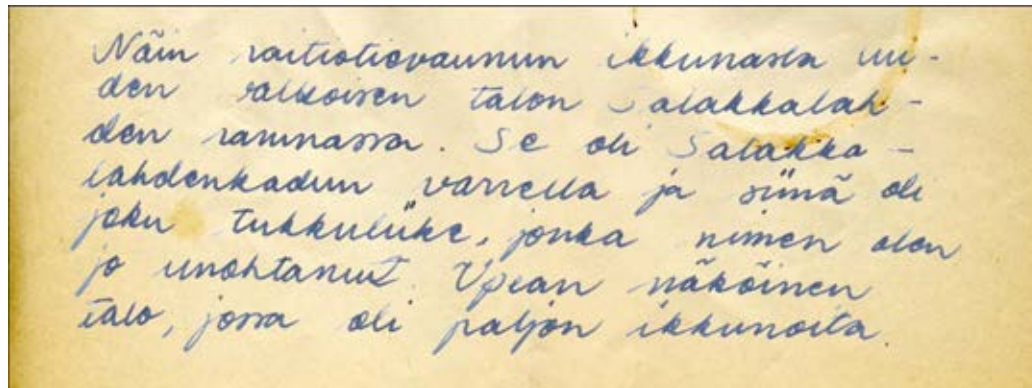 Näin raitiotievaunun ikkunasta uu-
den valkoisen talon Salakkalah-
den rannassa. Se oli Salakka-
lahdenkadun varrella ja siinä oli
joku tukkuliike, jonka nimen olen
jo unohtanut. Upean näköinen
talo, jossa oli paljon ikkunoita.